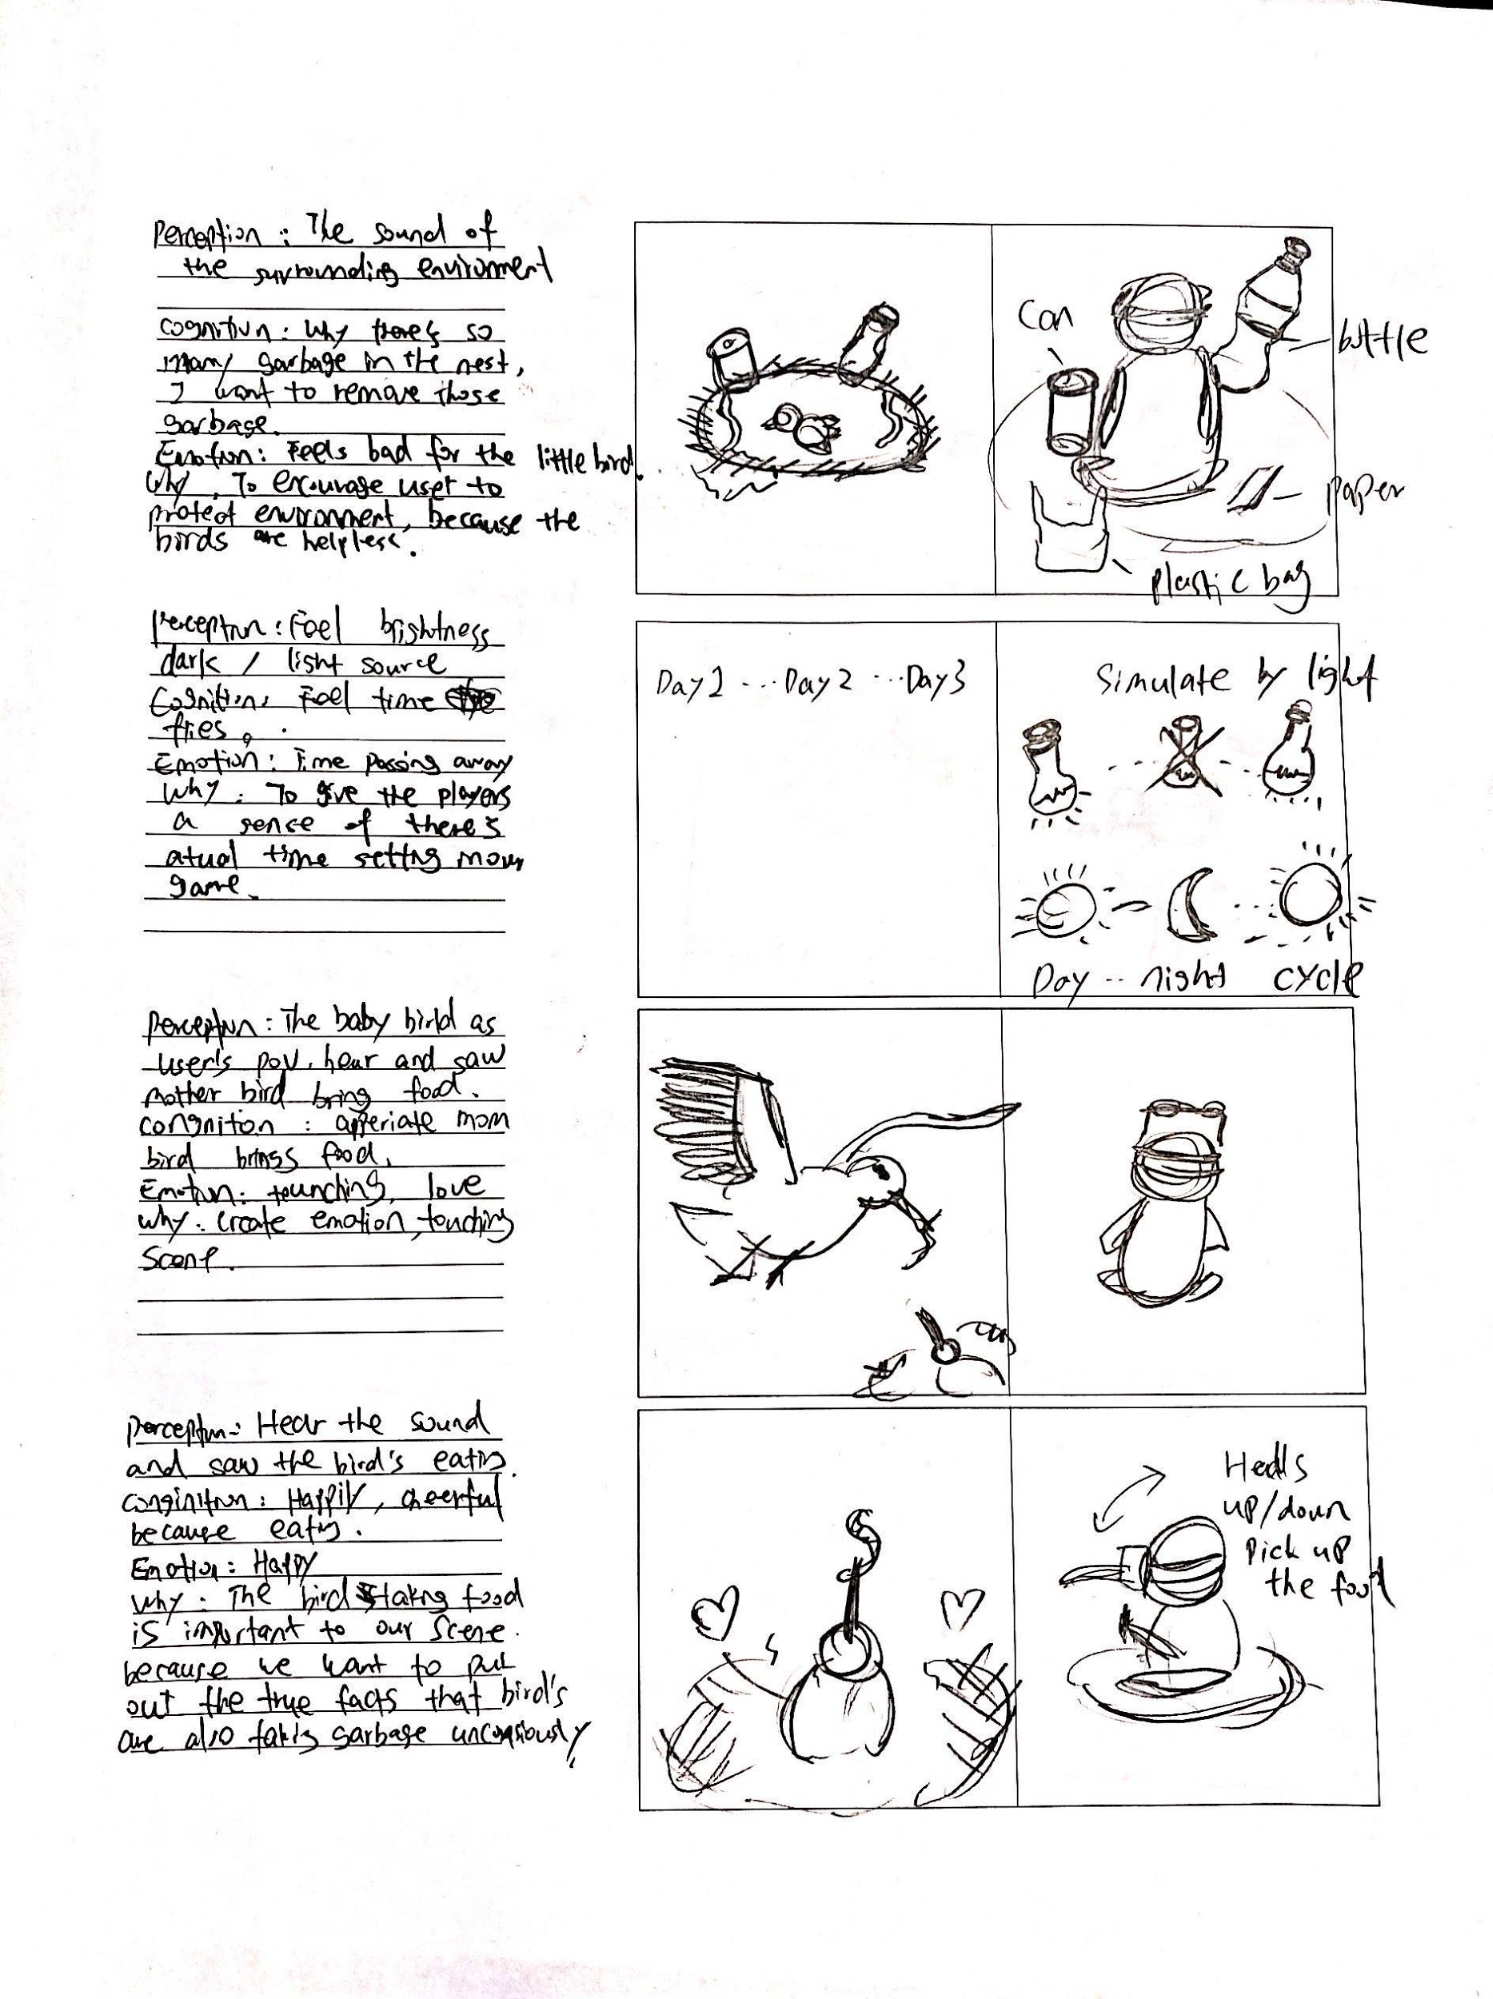 Perception : The sound of
the surrounding envirionment
cognitiun : Why there's so
many garbage in the nest,
I want to remove those
garbage.
Emotiun : Feels bad for the little bird.
Why, To encourage user to
protect environment, because the
birds are helpless.
Can
bottle
paper
plastic bag
Perceptiun : Feel brightness
dark / light source
Cognitiun: Feel time
flies.
Emotiun : Time passing away
Why : To give the players
a sense of there's
atual time setting
game.
Day1 ... Day2 ... Day3
Simulate by light
Day .. night cycle
Perceptiun : The baby bird as
user's pov, hear and saw
mother bird bring food.
congnition : apperiate mom
bird brings food.
Emotiun : tounching, love
why : Create emotion, touching
Scene.
Perceptiun : Hear the sound
and saw the bird's eating.
conginitiun : Happily, cheerful
because eating.
Emotion : Happy
why : The bird taking food
is important to our scene.
because we want to put
out the true facts that bird's
are also taking garbage unconsiously,
Heads
up/down
Pick up
the food